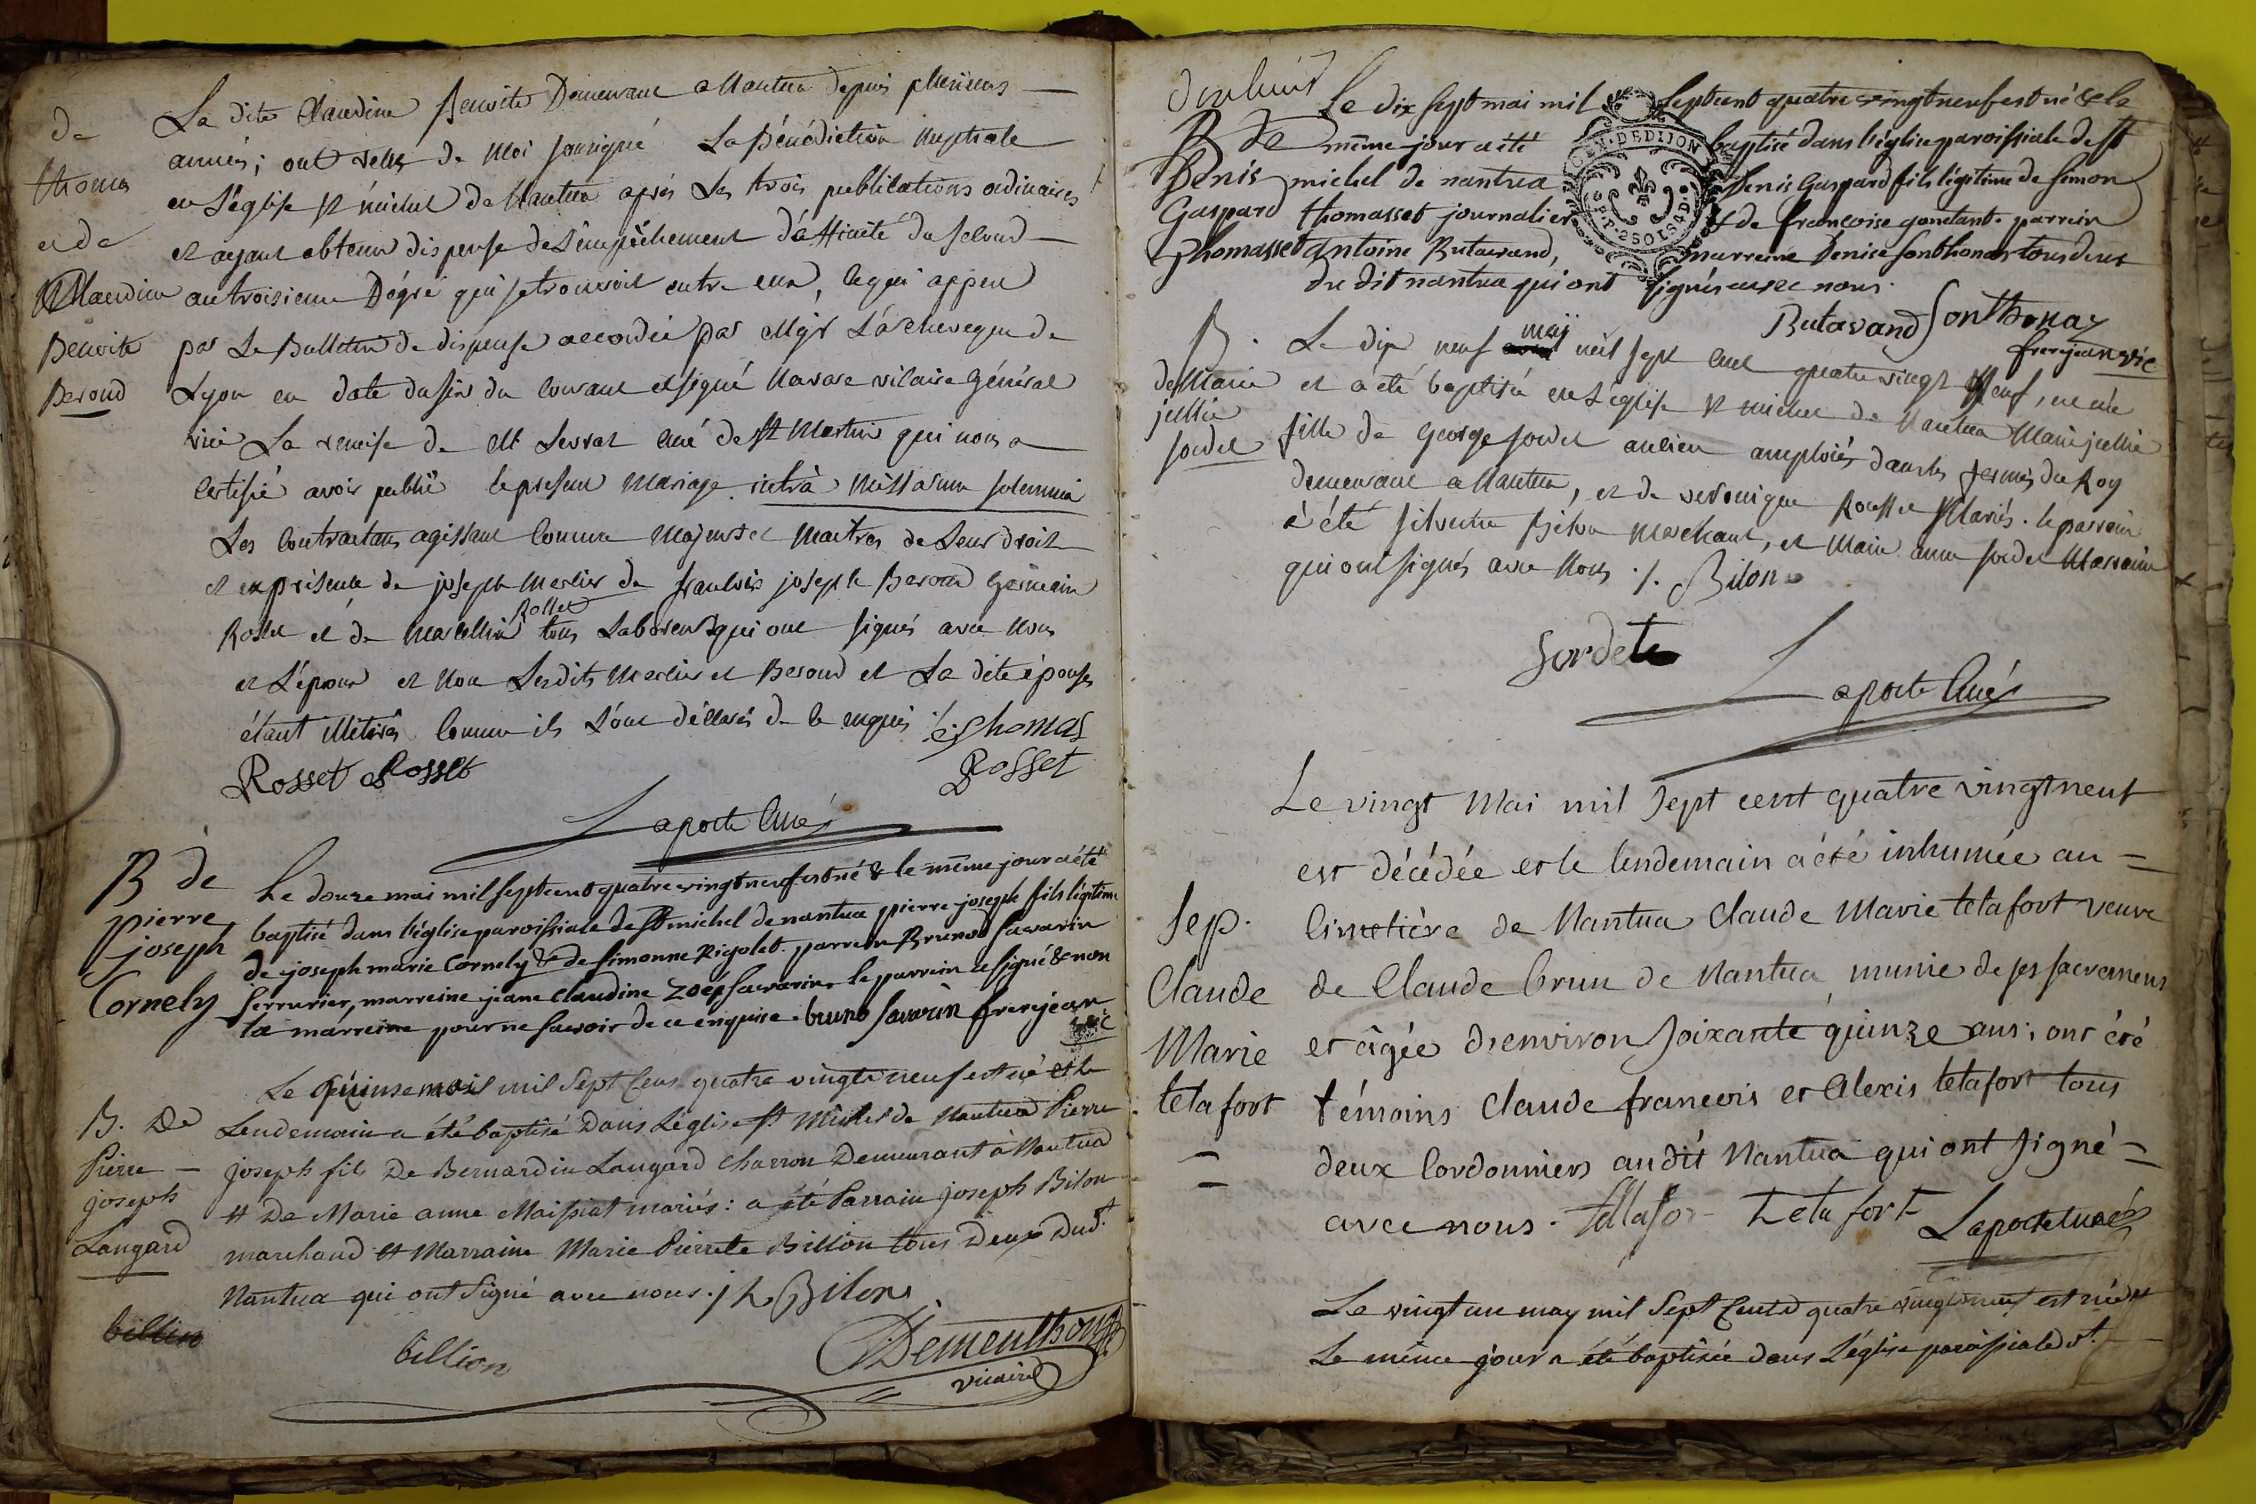 La dite Claudine Benoite Demeurant a Nantua depuis plusieurs
années; ont reçus de moi soussigné La Bénédiction Nuptiale
en L'église St michel de Nantua après Les trois publications ordinaires
et ayant obtenu dispense de L'empêchement d'affinité du second
au troisieme Dégré qui se trouvoit entre eux, ce qui appert
par Le Bulletin de dispense accordée par Mgr L'archeveque de
Lyon en date du six du courant et signé Navare vicaire Général
vue La remise de M Levrat curé de St Martin qui nous a
certifié avoir publié le present Mariage intrà missarum solemnia
Les contractans agissant comme majeurs et maitres de Leurs droits
et en présence de joseph Merlin de francois joseph Beroud Germain
Rosset et de Marcellin Rosset tous Laboreurs qui ont signés avec Nous
et L'époux et Non Lesdits Merlin et Beroud et La dite épouse
étant illitérés comme ils L'ont déclarés de ce enquis ./. Thomas
Rosset Rosset Rosset
Laporte Curé
de
thomas
et de
Claudine
Benoite
Beroud
B de
pierre
joseph
Cornely
Le douze mai mil sept cent quatre vingt neuf est né & le même jour a été
baptisé dans l'église paroissiale de St michel de nantua pierre joseph fils légitime
de joseph marie Cornely & de simonne Rigolet. parrein Bruno savarin
serrurier, marreine jeane claudine Zoé savarin, le parrein a signé & non
la marreine pour ne savoir de ce enquise. bruno savarin frerejean
vic
B. De
Pierre
joseph
Langard
Le Quinse mai mil Sept Cens quatre vingts neuf est né et le
Lendemain a été baptisé Dans L'église St Michel de Nantua Pierre
joseph fils De Bernardin Langard charron Demeurant à Nantua
et De Marie anne Maissiat mariés: a été Parrain joseph Bilon
marchand et Marraine Marie Pierrete Billion tous Deux Dudt
Nantua qui ont Signé avec nous. Bilon
billion
billion
Dementhon
vicaire
dix huit
B de
Denis
Gaspard
Thomasset
Le dix sept mai mil sept cent quatre vingt neuf est né & le
même jour a été baptisé dans l'église paroissiale de St
michel de nantua Denis Gaspard fils légitime de simon
thomasset journalier & de francoise gonetant. parrein
Antoine Butavand, marreine Denise sonthonax tous deux
du dit nantua qui ont signés avec nous.
GEN. DE DIJON
Butavand Sonthonax
frerejean vic
B.
de Marie
jullie
sordet
Le dix neuf maij mil sept cent quatre vingt Neuf, est née
et a été baptisée en L'église St michel de Nantua Marie jullie
fille de George sordet ancien amploiés dans les fermes du Roy
demeurant a Nantua, et de veronique Rousset Mariés. le parrain
à été silvestre Bilon marchant, et Marie anne sordet Marraine
qui ont signés avec Nous ./. Bilon
Sordet
Laporte Curé
Sep.
Claude
Marie
tetafort
Le vingt Mai mil sept cent quatre vingt neuf
est décédée et le lendemain a été inhumée au
cimetière de Nantua Claude Marie tetafort veuve
de Claude brun de Nantua munie de ses sacremens
et âgée d'environ soixante quinze ans; ont été
témoins Claude francois et Alexis tetafort tous
deux Cordonniers audit Nantua qui ont signé
avec nous. tetafort Laporte curé
Le vingt un may mil Sept Cents quatre vingts neuf est née et
Le même jour a été baptisée dans L'église paroissiale St.